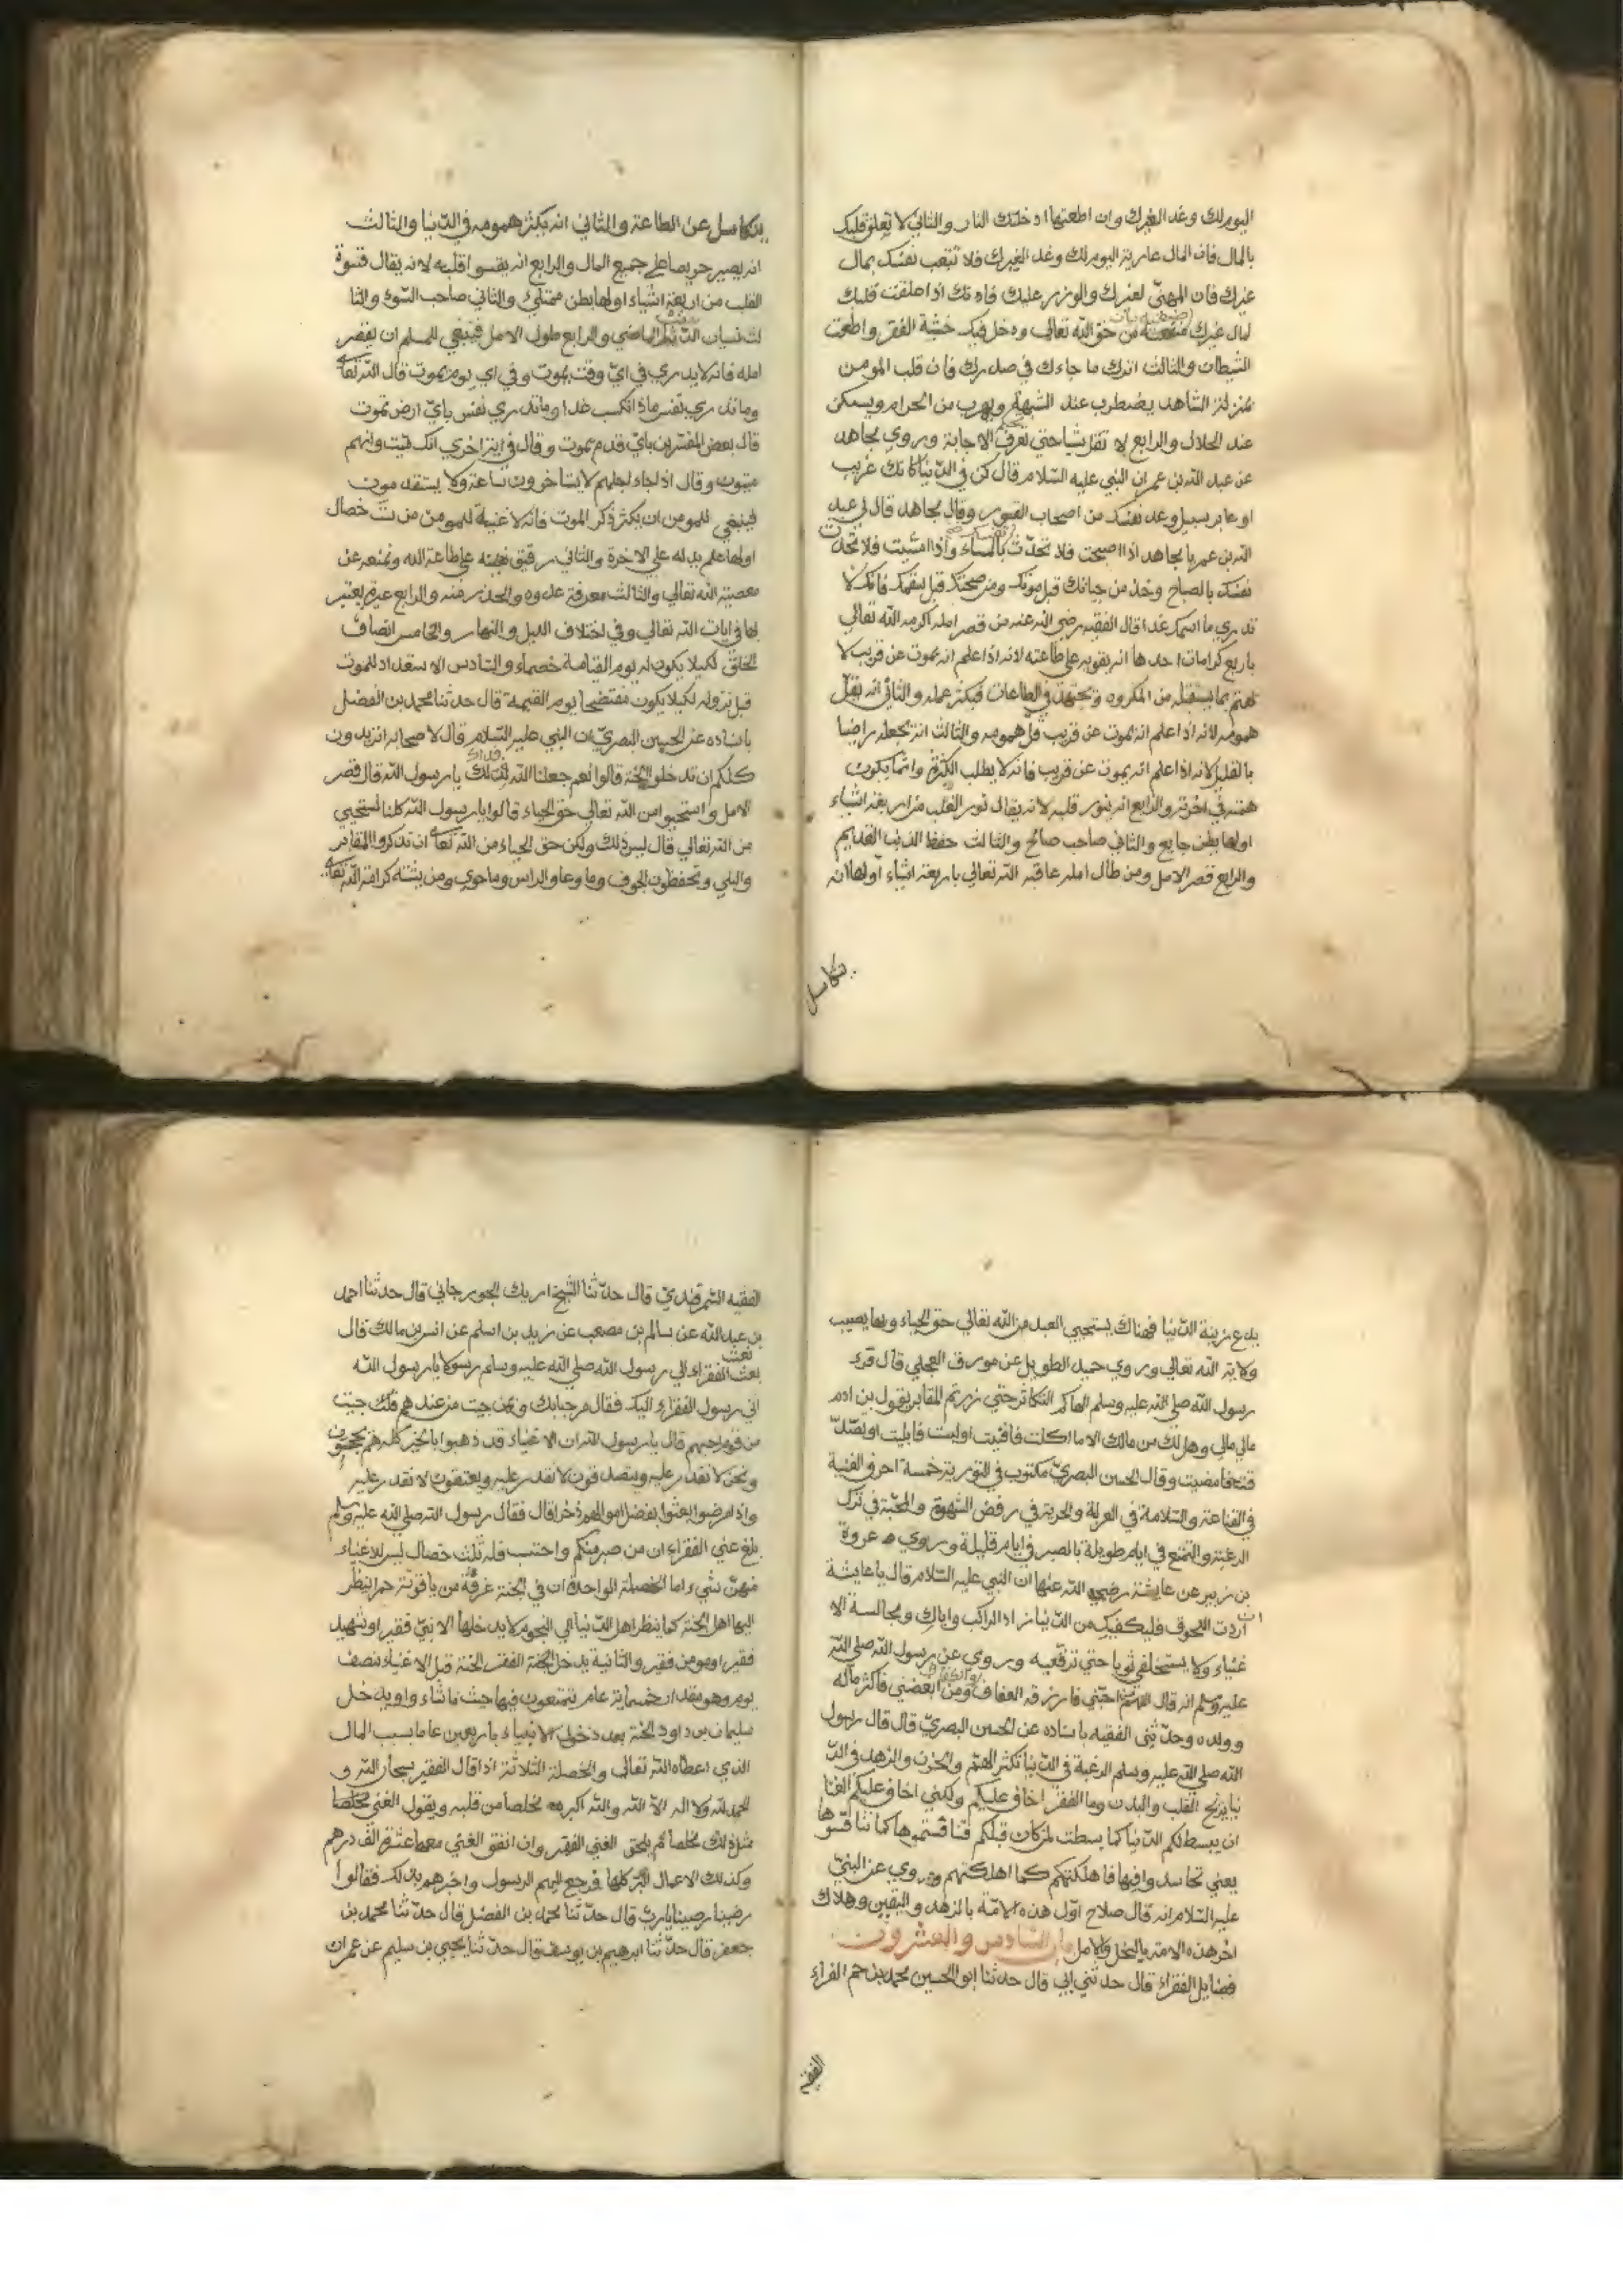 اليوم لك وغد الغيرك وان اطعتها ادخلتك النار والثاني لا تعلق قلبك
بالمال فان المال عارية اليوم لك وغد الغيرك فلا تتعب نفسك بمال
غيرك فان المهنّى لغيرك والوزر عليك فانك اذا علقت قلبك
لمال غيرك من حق الله تعالى ودخل فيك خشية الفقر واطعت
الشيطان والثالث اترك ما جاءك في صدرك فان قلب المومن
بمنزلة الشاهد يضطرب عند الشبهة ويهرب من الحرام ويسكن
عند الحلال والرابع لا تقل شيا حتي تعرف الاجابة وروي مجاهد
عن عبد الله بن عمر ان النبي عليه السلام قال كن في الدنيا كانك غريب
او عابر سبيل وعد نفسك من اصحاب القبور وقال مجاهد قال لي عبد
الله بن عمر يا مجاهد اذا اصبحت فلا تحدّث بالمساء واذا امسيت فلا تحدث
نفسك بالصباح وخذ من حياتك قبل موتك ومن صحتك قبل سقمك فانك لا
تدري ما اسمك غدا قال الفقيه رضي الله عنه من قصر امله اكرمه الله تعالي
باربع كرامات احدها انه يقويه علي طاعته لانه اذا علم انه يموت عن قريب لا
يهتم بما يستقبل من المكروه ويجتهد في الطاعات فيكثر عمله والثاني انه يقلّ
همومه لانه اذا علم انه يموت عن قريب قل همومه والثالث انه يجعله راضيا
بالقليل لانه اذا علم انه يموت عن قريب فانه لا يطلب الكثرة وانما يكون
همته في اخرته والرابع انه ينور قلبه لانه يقال نور القلب من اربعة اشياء
اولها بطن جايع والثاني صاحب صالح والثالث حفظ الذنب القديم
والرابع قصر الامل ومن طال امله عاقبه الله تعالي باربعة اشياء اولها انه
يتكاسل
يتكاسل عن الطاعة والثاني انه يكثر همومه في الدنيا والثالث
انه يصير حريصا علي جميع المال والرابع انه يقسوا قلبه لانه يقال قسوة
القلب من اربعة اشياء اولها بطن ممتلئ والثاني صاحب السوء والثا
لث نسيان الماضي والرابع طول الامل فينبغي للمسلم ان يقصر
امله فانه لا يدري في ايّ وقت يموت وفي اي يوم يموت قال الله تعا
وما تدري نفس ماذا تكسب غدا وما تدري نفس بايّ ارض تموت
قال بعض المفسرين بايّ قدم يموت وقال في اية اخري انك ميت وانهم
ميتون وقال اذا جاء اجلهم لا يستاخرون ساعة ولا يستقدمون
فينبغي للمومن ان يكثر ذكر الموت فانه لا غنية للمومن من ست خصال
اولها علم يدله علي الاخرة والثاني رفيق يعينه علي طاعة الله ويمنعه عن
معصية الله تعالي والثالث معرفة عدوه والحذر منه والرابع عبرة يعتبر
بها في ايات الله تعالي وفي اختلاف الليل والنهار والخامس انصاف
الخلق لكيلا يكون له يوم القيامة خصماء والسادس الاستعداد للموت
قبل نزوله لكيلا يكون مفتضحا يوم القيمة قال حدثنا محمد بن الفضل
باسناده عن الحسين البصريّ ان النبي عليه السلام قال لاصحابه اتريدون
كلكم ان تدخلوا الجنة قالوا نعم جعلنا الله فداك يا رسول الله قال قصر
الامل واستحيوا من الله تعالي حق الحياء قالوا يا رسول الله كلنا نستحيي
من الله تعالي قال ليس ذلك ولكن حق الحياء من الله تعا ان تذكروا المقابر
والبلي وتحفظون الجوف وما وعا والراس وما حوي ومن يشته كرامة الله تعا
يدع زينة الدنيا فهناك يستحيي العبد من الله تعالي حق الحياء وبها يصيب
ولاية الله تعالي وروي حميد الطويل عن مورق العجلي قال قرء
رسول الله صلى الله عليه وسلم الهاكم التكاثر حتي زرتم المقابر يقول بن ادم
مالي مالي وهل لك من مالك الا ما اكلت فافنيت او لبست فابليت او تصدّ
قت فامضيت وقال الحسن البصريّ مكتوب في التورية خمسة احرف الغنية
في القناعة والسلامة في العزلة والحرية في رفض الشهوة والمحبّة في ترك
الرغبة والتمتع في ايام طويلة بالصبر في ايام قليلة وروي عروة
بن زبير عن عايشة رضي الله عنها ان النبي عليه السلام قال يا عايشة
ان اردت اللحوق فليكفيك من الدنيا زاد الراكب واياك ومجالسة الا
غنياء ولا يستخلفي ثوبا حتي ترقعيه وروي عن رسول الله صلى الله
عليه وسلم انه قال اللهم من احبّني فارزقه العفاف والكفاف ومن ابغضني فاكثر ماله
وولده وحدثني الفقيه باسناده عن الحسين البصريّ قال قال رسول
الله صلي الله عليه وسلم الرغبة في الدنيا تكثر الهمّ والحزن والزهد في الد
نيا يريح القلب والبدن وما الفقر اخاف عليكم ولكني اخاف عليكم الغنا
ان يبسط لكم الدنيا كما بسطت لمن كان قبلكم فتنافستموها كما تنافسوها
يعني تحاسدوا فيها فاهلكتكم كما اهلكتهم وروي عن النبيّ
عليه السلام انه قال صلاح اوّل هذه الامّة بالزهد واليقين وهلاك
اخر هذه الامة بالبخل والامل باب السادس والعشرون
فضايل الفقراء قال حدثني ابي قال حدثنا ابو الحسين محمد بن حم الفراء
الفقيه
الفقيه السمرقندي قال حدّثنا الشيخ الجورجاني قال حدثنا احمد
بن عبد الله عن سالم بن مصعب عن زيد بن اسلم عن انس بن مالك قال
بعث الفقراء الي رسول الله صلى الله عليه وسلم رسولا يا رسول الله
اني رسول الفقراء اليك فقال مرحبا بك وبمن جيت من عندهم فلك جيت
من قوم احبهم قال يا رسول الله ان الاغنياء قد ذهبوا بالخير كله هم يحجون
ونحن لا نقدر عليه ويتصدقون لا نقدر عليه ويعتقون لا نقدر عليه
واذا مرضوا بعثوا بفضل اموالهم ذخرا قال فقال رسول الله صلى الله عليه وسلم
بلغ عني الفقراء ان من صبر منكم واحتسب فله ثلث خصال ليس للاغنياء
منهنّ شيء اما الخصلة الواحدة ان في الجنة غرفة من ياقوتة حمرا ينظر
اليها اهل الجنة كما ينظر اهل الدنيا الي النجوم لا يدخلها الا نبيّ فقير او شهيد
فقير او مومن فقير والثانية يدخل الجنة الفقراء الجنة قبل الاغنياء بنصف
يوم وهو بقدر خمسماية عام يتمتعون فيها حيث ما شاء واو يدخل
سليمان بن داود الجنة بعد دخول الانبياء باربعين عاما بسبب المال
الذي اعطاه الله تعالي والخصلة الثلاثة اذا قال الفقير سبحان الله و
الحمد لله ولا اله الا الله والله اكبر مخلصا من قلبه ويقول الغني مخلصا
مثل ذلك مخلصا لم يلحق الغني الفقير وان انفق الغني معها عشرة الف درهم
وكذلك الاعمال البّر كلها فرجع اليهم الرسول واخبرهم بذلك فقالوا
رضينا رضينا يا ربّ قال حدّثنا محمد بن الفضل قال حدّثنا محمد بن
جعفر قال حدّثنا ابرهيم بن يوسف قال حدّثنا يحيي بن سليم عن عمران